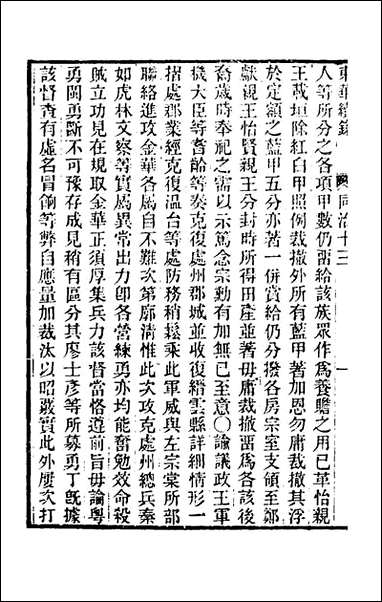 東華續錄 同治十三 一
人等所分之各項甲數仍畱給該族眾作爲養贍之用已革怡親
王載垣除紅白甲照例裁撤外所有藍甲著加恩勿庸裁撤其浮
於定額之藍甲五分亦著一併賞給仍分撥各房宗室支領至鄭
獻親王怡賢親王分封時所得田產並著毋庸裁撤畱爲各該後
裔歲時奉祀之需以示篤念宗勳有加無已至意○諭議政王軍
機大臣等耆齡等奏克復處州郡城並收復縉雲縣詳細情形一
摺處郡業經克復溫台等處防務稍鬆乘此軍威與左宗棠所部
聯絡進攻金華各屬自不難次第廓淸惟此次攻克處州總兵秦
如虎林文察等實屬異常出力卽各營練勇亦均能奮勉效命殺
賊立功見在規取金華正須厚集兵力該督當恪遵前旨毋論粵
勇閩勇斷不可豫存成見稍有區分其廖士彥等所募勇丁旣據
該督查有虛名冒餉等弊自應量加裁汰以昭嚴實此外屢次打